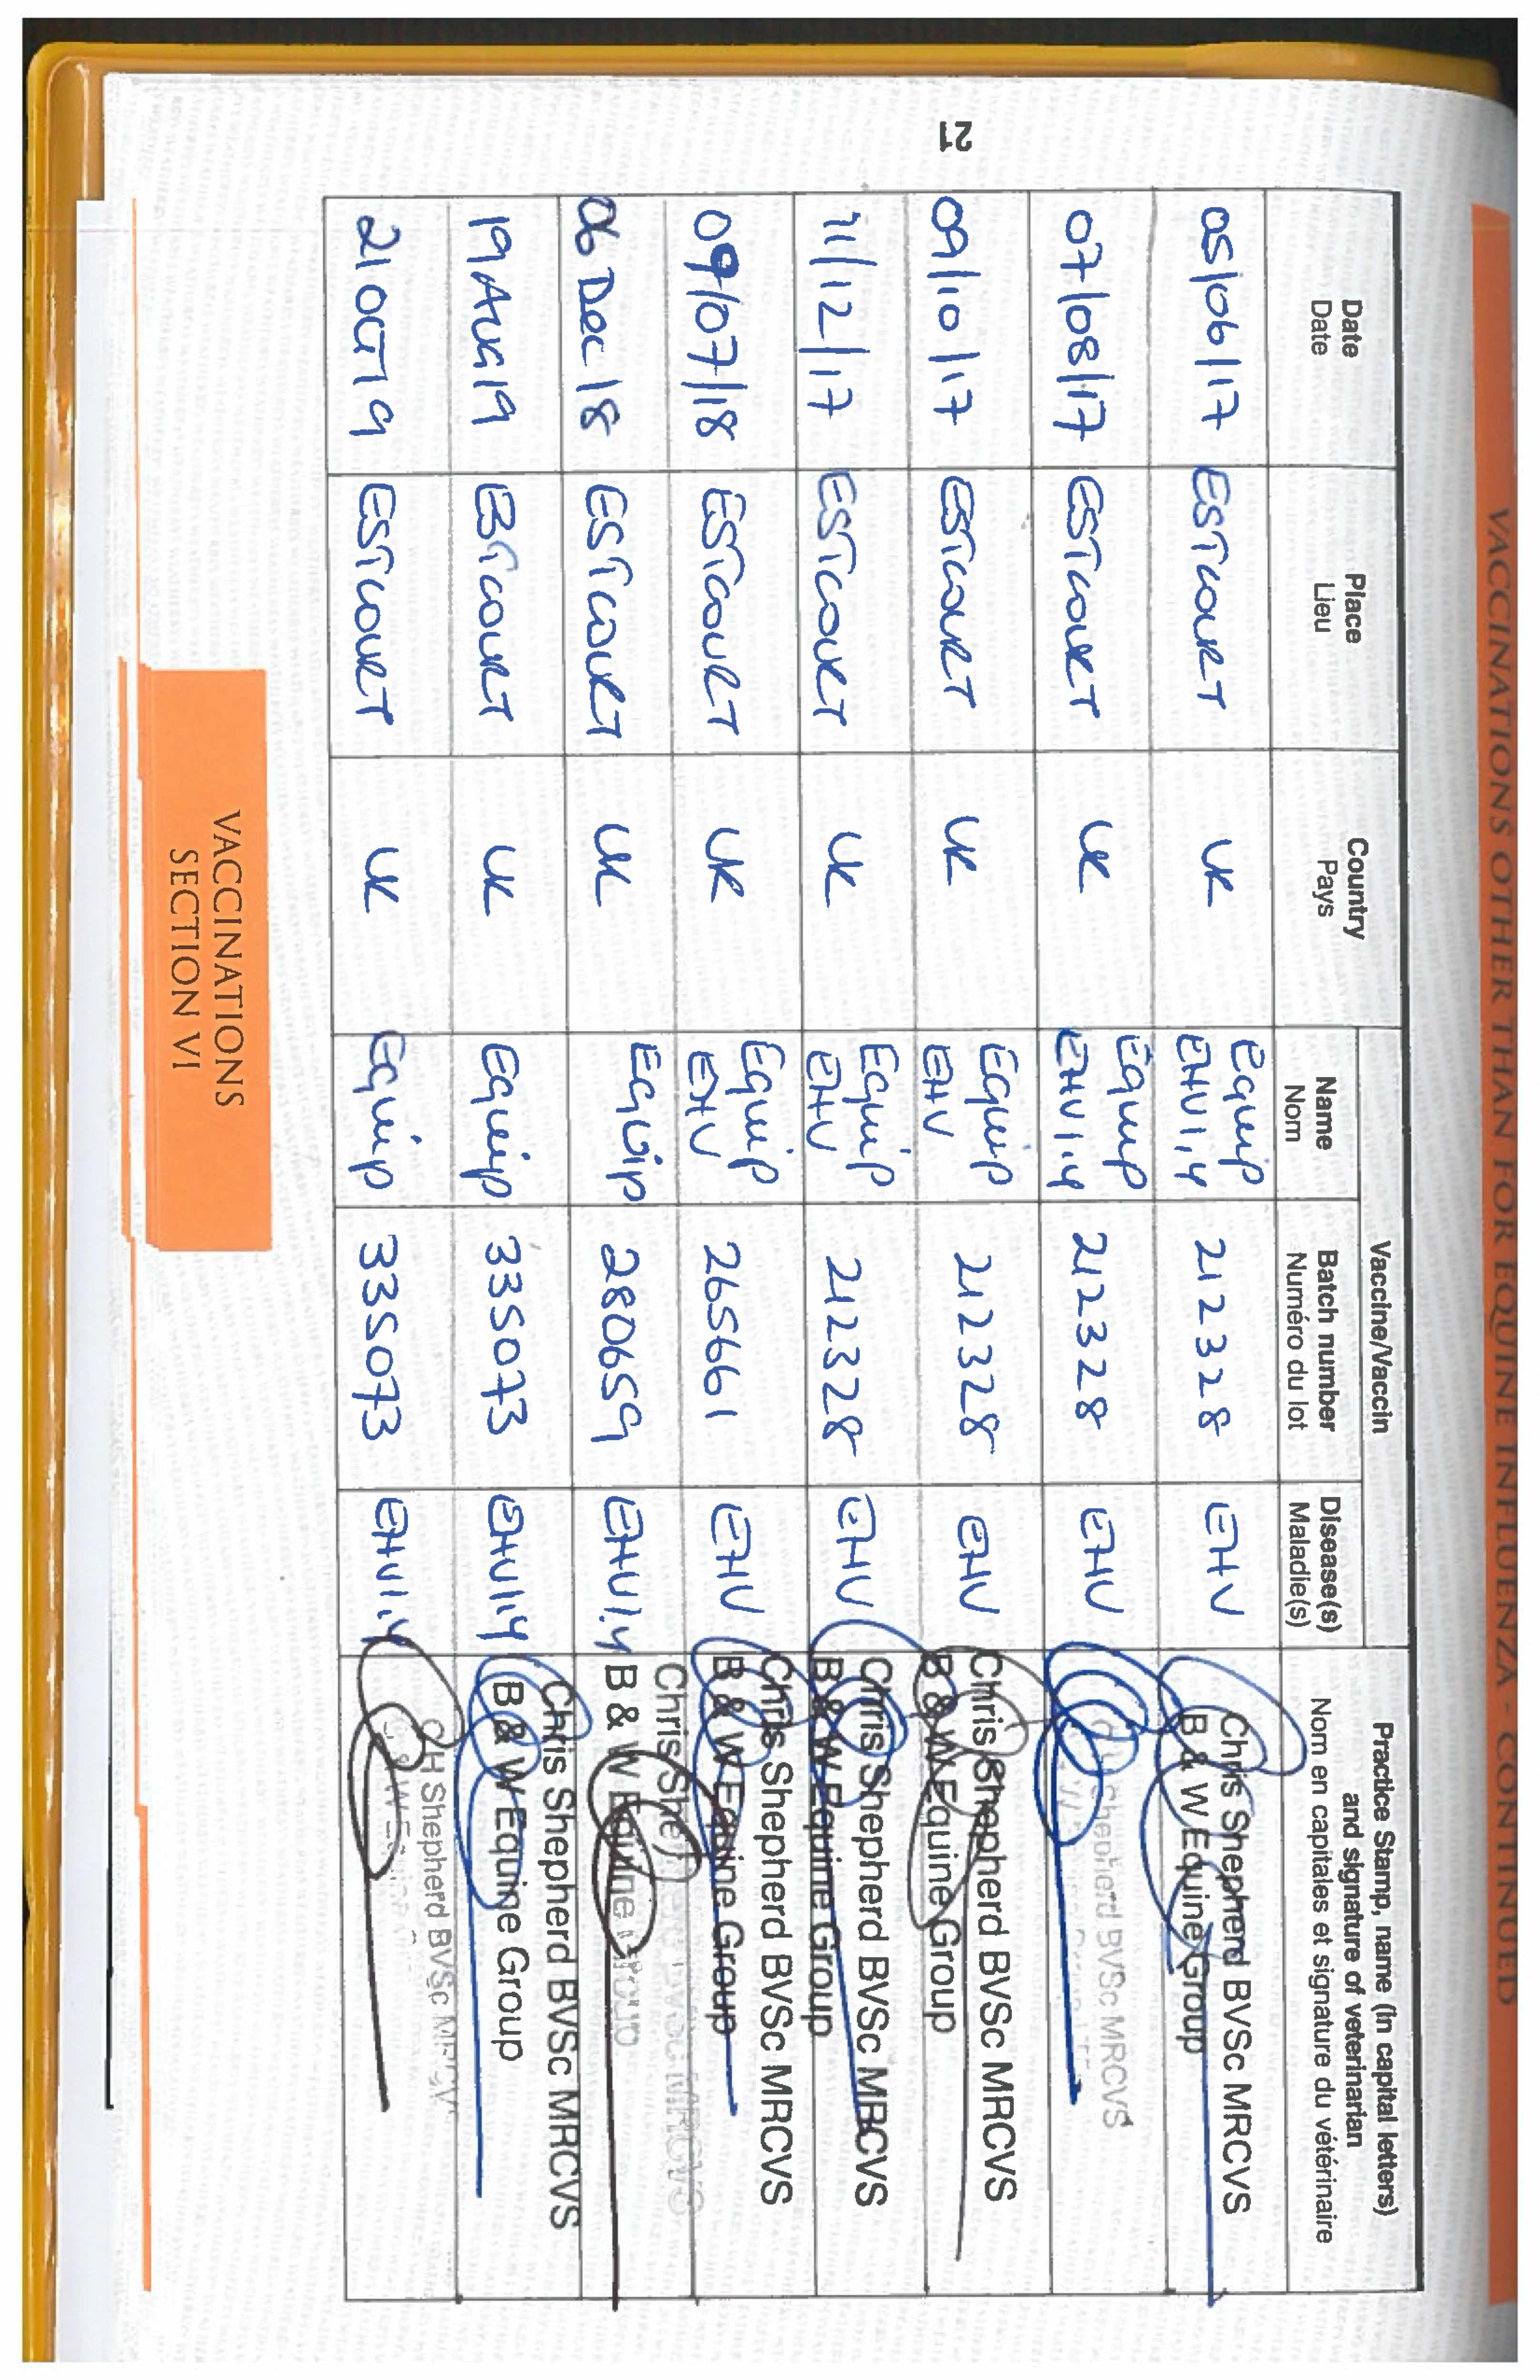 VACCINATIONS OTHER THAN FOR EQUINE INFLUENZA - CONTINUED
Date
Date
Place
Lieu
Country
Pays
Vaccine/Vaccin
Name
Nom
Batch number
Numéro du lot
Disease(s)
Maladie(s)
Practice Stamp, name (in capital letters)
and signature of veterinarian
Nom en capitales et signature du vétérinaire
05/06/17 ESTCOURT UK Equip EHV1,4 212328 EHV Chris Shepherd BVSc MRCVS
B & W Equine Group
07/08/17 ESTCOURT UK Equip EHV1,4 212328 EHV Shepherd BVSc MRCVS
09/10/17 ESTCOURT UK Equip EHV 212328 EHV Chris Shepherd BVSc MRCVS
B & W Equine Group
11/12/17 ESTCOURT UK Equip EHV 212328 EHV Chris Shepherd BVSc MRCVS
B & W Equine Group
09/07/18 ESTCOURT UK Equip EHV 265661 EHV Chris Shepherd BVSc MRCVS
B & W Equine Group
06 Dec 18 ESTCOURT UK Equip 280659 EHV1,4 Chris Shepherd BVSc MRCVS
B & W Equine Group
19 Aug 19 ESTCOURT UK Equip 335073 EHV1,4 Chris Shepherd BVSc MRCVS
B & W Equine Group
21 OCT 19 ESTCOURT UK Equip 335073 EHV1,4 CH Shepherd BVSc MRCV
VACCINATIONS
SECTION VI
21